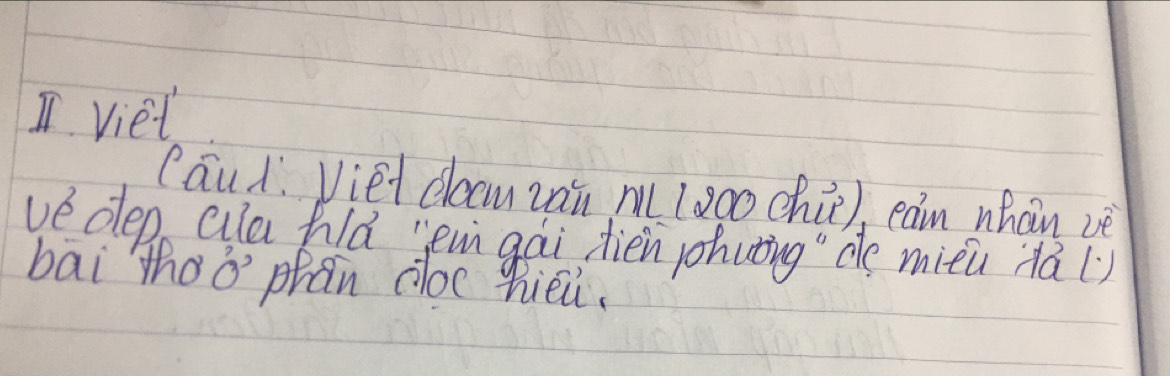 II. Viết
Câu 1: Viết đoạn văn NL (200 chữ), cảm nhận về
vẻ đẹp của h/ả "em gái tiền phương" đc miêu tả (.)
bài thơ ở phần đọc hiểu.